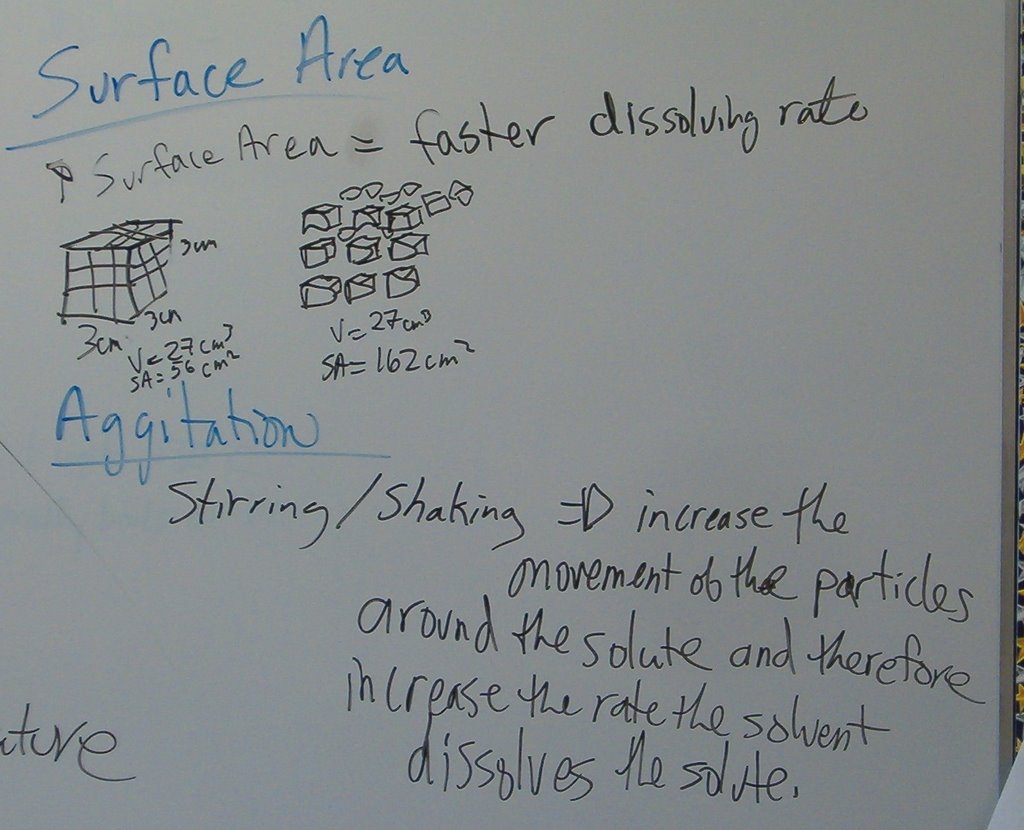 Surface Area
↑ Surface Area = faster dissolving rate
3cm
3cm
3cm
V=27cm³
SA=56cm²
V=27cm³
SA=162cm²
Aggitation
Stirring/Shaking => increase the
movement of the particles
around the solute and therefore
increase the rate the solvent
dissolves the solute.
ture